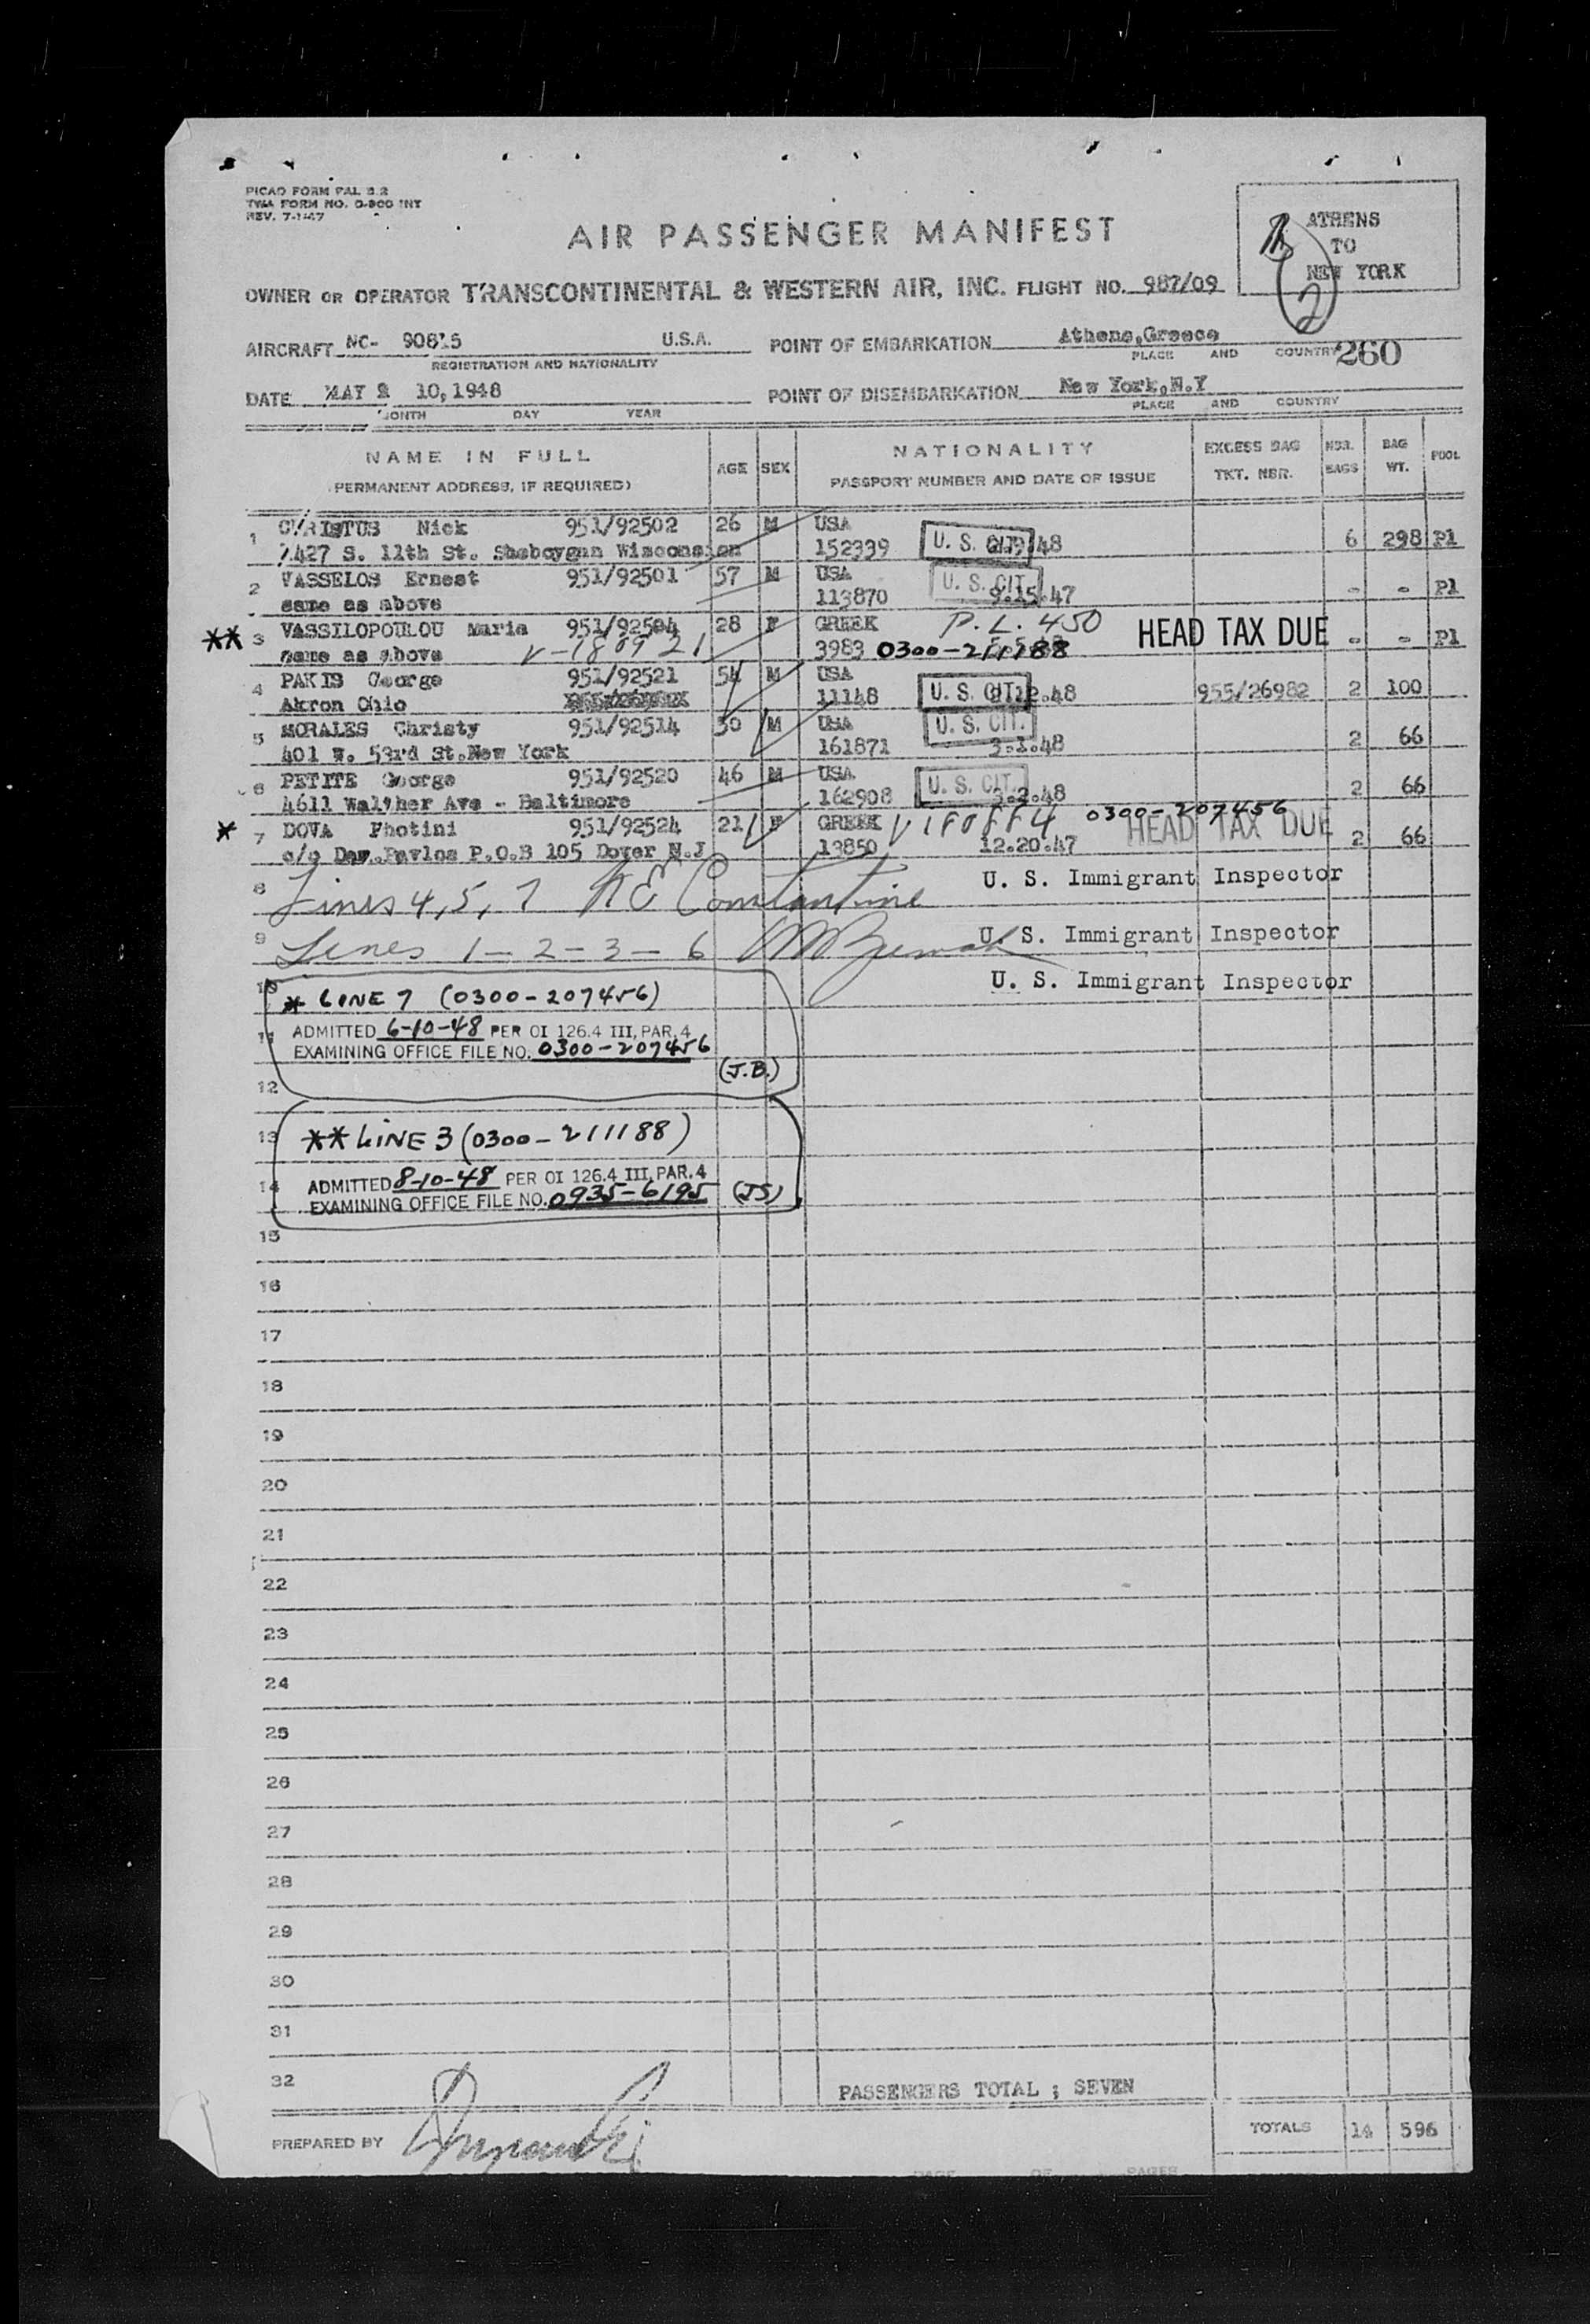 PICAO FORM PAL 2.2
TWA FORM NO. O-800 INT
REV. 7-1-47
AIR PASSENGER MANIFEST
ATHENS
TO
NEW YORK
2
OWNER OR OPERATOR TRANSCONTINENTAL & WESTERN AIR, INC. FLIGHT NO. 987/09
AIRCRAFT NC- 90815 U.S.A. POINT OF EMBARKATION Athens,Greece
REGISTRATION AND NATIONALITY PLACE AND COUNTRY 260
DATE MAY 10,1948 POINT OF DISEMBARKATION New York,N.Y
MONTH DAY YEAR PLACE AND COUNTRY
NAME IN FULL AGE SEX NATIONALITY EXCESS BAG NBR. BAG POOL
(PERMANENT ADDRESS, IF REQUIRED) PASSPORT NUMBER AND DATE OF ISSUE TKT. NBR. BAGS WT.
1 CHRISTUS Nick 951/92502 26 M USA U. S. CIT. 6 298 Pl
1427 S. 11th St. Sheboygan Wisconsion 152339 48
2 VASSELOS Ernest 951/92501 57 M USA U. S. CIT. - - Pl
same as above 113870 9.15.47
** 3 VASSILOPOULOU Maria 951/92504 28 F GREEK P.L. 450 HEAD TAX DUE - - Pl
same as above V-180921 3983 0300-211188
4 PAKIS George 951/92521 54 M USA U. S. CIT. 955/26982 2 100
Akron Ohio 11148 .48
5 MORALES Christy 951/92514 30 M USA U. S. CIT. 2 66
401 W. 53rd St.New York 161871 3.1.48
6 PETITE George 951/92520 46 M USA U. S. CIT. 2 66
4611 Walther Ave - Baltimore 162908 3.2.48
* 7 DOVA Photini 951/92524 21 F GREEK 0300-207456 HEAD TAX DUE 2 66
c/o Dav.Pavlos P.O.B 105 Dover N.J 13850 12.20.47
8 Lines 4,5,7 N E Constantine U. S. Immigrant Inspector
9 Lines 1-2-3-6 U. S. Immigrant Inspector
10 * LINE 7 (0300-207456) U. S. Immigrant Inspector
11 ADMITTED 6-10-48 PER OI 126.4 III, PAR. 4
EXAMINING OFFICE FILE NO. 0300-207456
12 (J.B.)
13 ** LINE 3 (0300-211188)
14 ADMITTED 8-10-48 PER OI 126.4 III, PAR. 4
EXAMINING OFFICE FILE NO. 0935-6195 (JS)
15
16
17
18
19
20
21
22
23
24
25
26
27
28
29
30
31
32 PASSENGERS TOTAL ; SEVEN
PREPARED BY TOTALS 14 596
PAGE OF PAGES